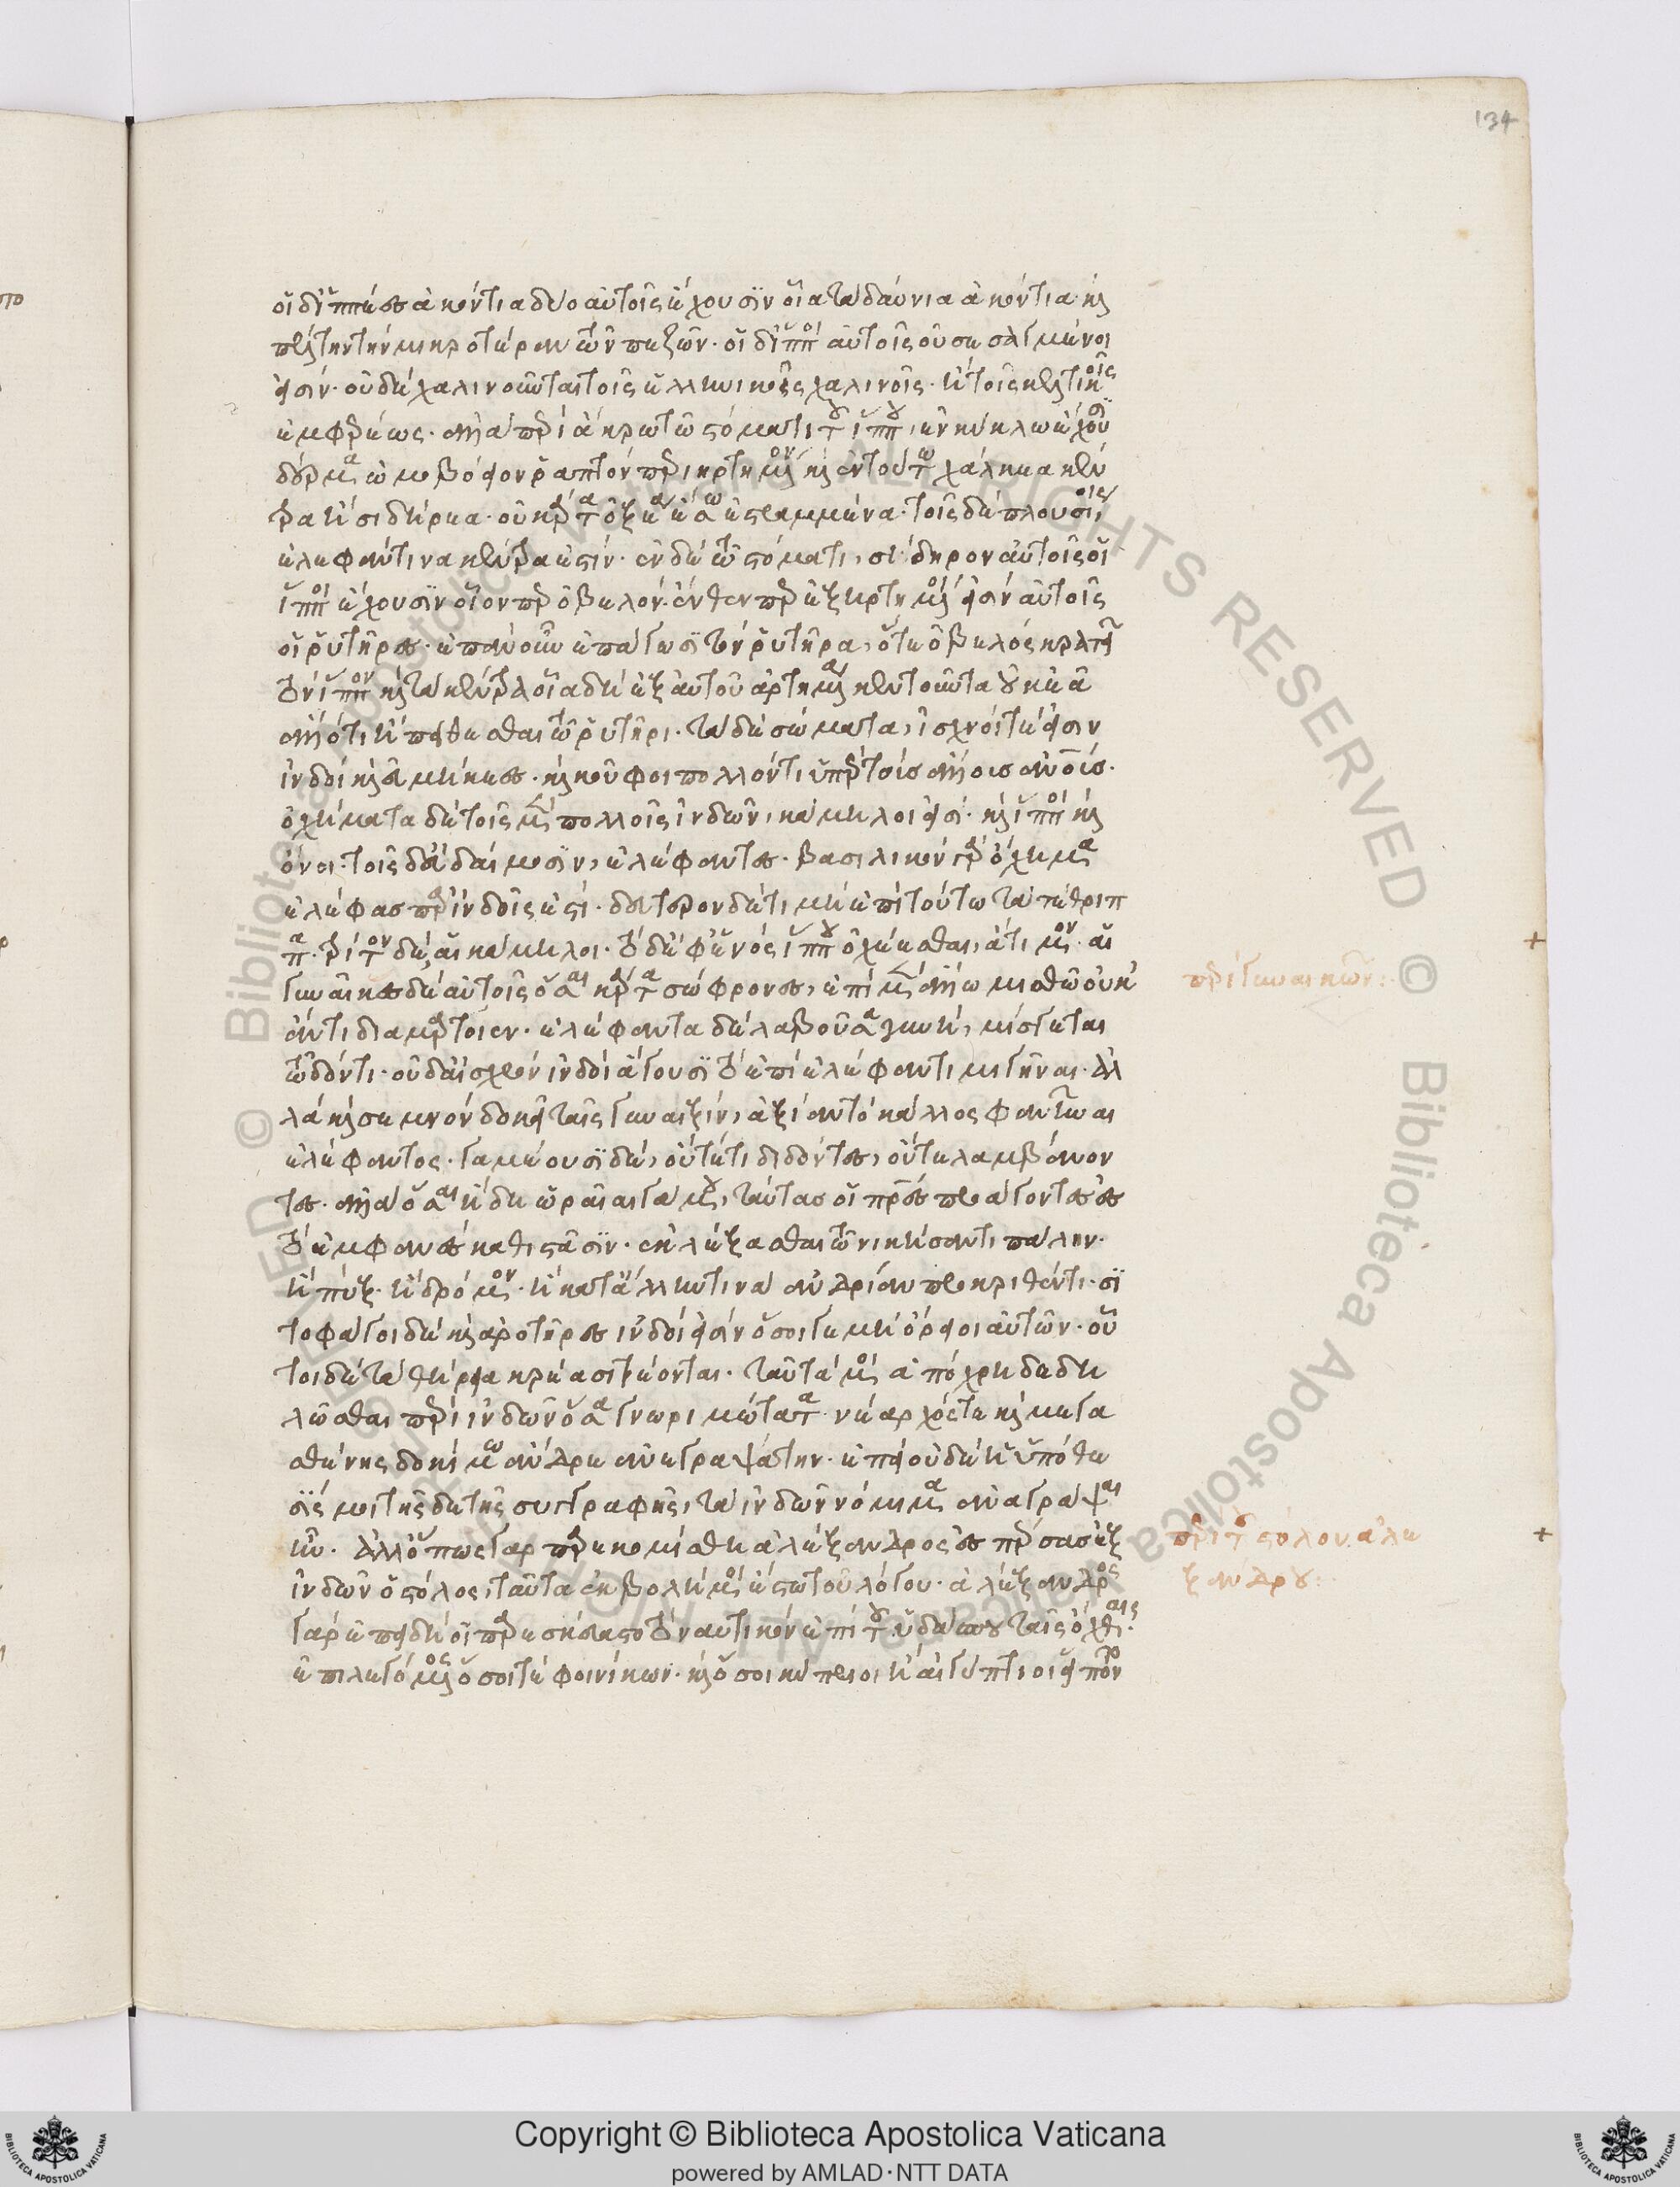 οἱ δὲ ἱππέες ἀκόντια δύο αὐτοῖς ἔχουσιν οἷα τὰ δαύνια ἀκόντια· καὶ
πέλτην τὴν μικροτέραν τῶν πεζῶν· οἱ δὲ ἵπποι αὐτοῖς οὐ σεσαγμένοι
εἰσίν· οὐδὲ χαλινοῦνται τοῖς ἑλληνικοῖς χαλινοῖς· ἢ τοῖς κελτικοῖς
ἐμφερέως· ἀλλὰ περὶ ἄκρω τῶ στόματι τοῦ ἵππου, ἐν κύκλω ἔχουσι
δέρμα ὠμοβόειον ῥαπτὸν περιηρτημένον καὶ ἐν τούτω χάλκεα κέν
τρα ἢ σιδήρεα· οὐ κάρτα ὀξέα ἔσω ἐστραμμένα· τοῖς δὲ πλουσίοις,
ἐλεφάντινα κέντρα ἐστίν· ἐν δὲ τῶ στόματι, σίδηρον αὐτοῖς οἱ
ἵπποι ἔχουσιν οἷον περ ὀβελόν· ἔνθεν περ ἐξηρτημένοι εἰσὶν αὐτοῖς
οἱ ῥυτῆρες· ἐπὰν οὖν ἐπάγωσι τὸν ῥυτῆρα, ὅτε ὀβελὸς κρατεῖ
τὸν ἵππον καὶ τὰ κέντρα οἷα δὴ ἐξ αὐτοῦ ἀρτημένα κεντοῦντα οὐκ ἐᾶ
ἄλλό τι ἢ πείθεσθαι τῶ ῥυτῆρι· τὰ δὲ σώματα, ἰσχνοί τέ εἰσιν
ἰνδοὶ καὶ εὐμήκεες· καὶ κοῦφοι πολλόν τι ὑπὲρ τοὺς ἄλλους ἀνθρώπους·
ὀχήματα δὲ τοῖς μὲν πολλοῖς ἰνδῶν, κάμηλοί εἰσι· καὶ ἵπποι καὶ
ὄνοι· τοῖς δὲ εὐδαίμοσιν, ἐλέφαντες· βασιλικὸν γὰρ ὄχημα
ἐλέφας παρ' ἰνδοῖς ἐστί· δεύτερον δὲ τιμῆ ἐπὶ τούτω τὰ τέθριπ
πα· τρίτον δὲ, αἱ κάμηλοι· τὸ δὲ ἐφ' ἑνὸς ἵππου ὀχέεσθαι, ἄτιμον· αἱ
γυναῖκες δὲ αὐτοῖς ὅσαι κάρτα σώφρονες, ἐπὶ μὲν ἄλλω μισθῶ οὐκ
ἄν τι διαμάρτοιεν· ἐλέφαντα δὲ λαβοῦσα γυνὴ, μίσγεται
τῶ δόντι· οὐδὲ αἰσχρὸν ἰνδοὶ ἄγουσι τὸ ἐπὶ ἐλέφαντι μιγῆναι· ἀλ
λὰ καὶ σεμνὸν δοκεῖ ταῖς γυναιξὶν, ἀξίαν τὸ κάλλος φανῆναι
ἐλέφαντος· γαμέουσι δὲ, οὔτέ τι διδόντες, οὔτε λαμβάνον
τες· ἀλλὰ ὅσαι ἤδη ὡραῖαι γάμου, ταύτας οἱ πατέρες προάγοντες ἐς
τὸ ἐμφανὲς καθιστᾶσιν· ἐκλέξασθαι τῶ νικήσαντι πάλην·
ἢ πύξ· ἢ δρόμον· ἢ κατ' ἄλλην τινὰ ἀνδρίαν προκριθέντι· σι
τοφάγοι δὲ καὶ ἀροτῆρες ἰνδοί εἰσιν ὅσοι γε μὴ ὄρειοι αὐτῶν· οὗ
τοι δὲ τὰ θήρεια κρέα σιτέονται· ταῦτά μοι ἀπόχρη δεδη
λῶσθαι περὶ ἰνδῶν ὅσα γνωριμώτατα νέαρχός τε καὶ μεγα
σθένης δοκίμω ἄνδρε ἀνεγραψάτην· ἐπεὶ οὐδὲ ἡ ὑπόθε
σίς μοι τῆσδε τῆς συγγραφῆς, τὰ ἰνδῶν νόμιμα ἀναγράψαι
ἦν· ἀλλ' ὅπως γὰρ παρεκομίσθη ἀλέξανδρος ἐς πέρσας ἐξ
ἰνδῶν ὁ στόλος, ταῦτα ἐκβολή μοι ἔστω τοῦ λόγου· ἀλέξανδρος
γὰρ ἐπειδὴ οἱ παρεσκεύαστο τὸ ναυτικὸν ἐπὶ τοῦ ὑδάσπου ταῖς ὄχθαις·
ἐπιλεγόμενος ὅσοι τε φοινίκων· καὶ ὅσοι κύπριοι ἢ αἰγύπτιοι εἵποντο
περὶ γυναικῶν:
περὶ τοῦ στόλου ἀλε
ξάνδρου:
134
Copyright © Biblioteca Apostolica Vaticana
powered by AMLAD·NTT DATA